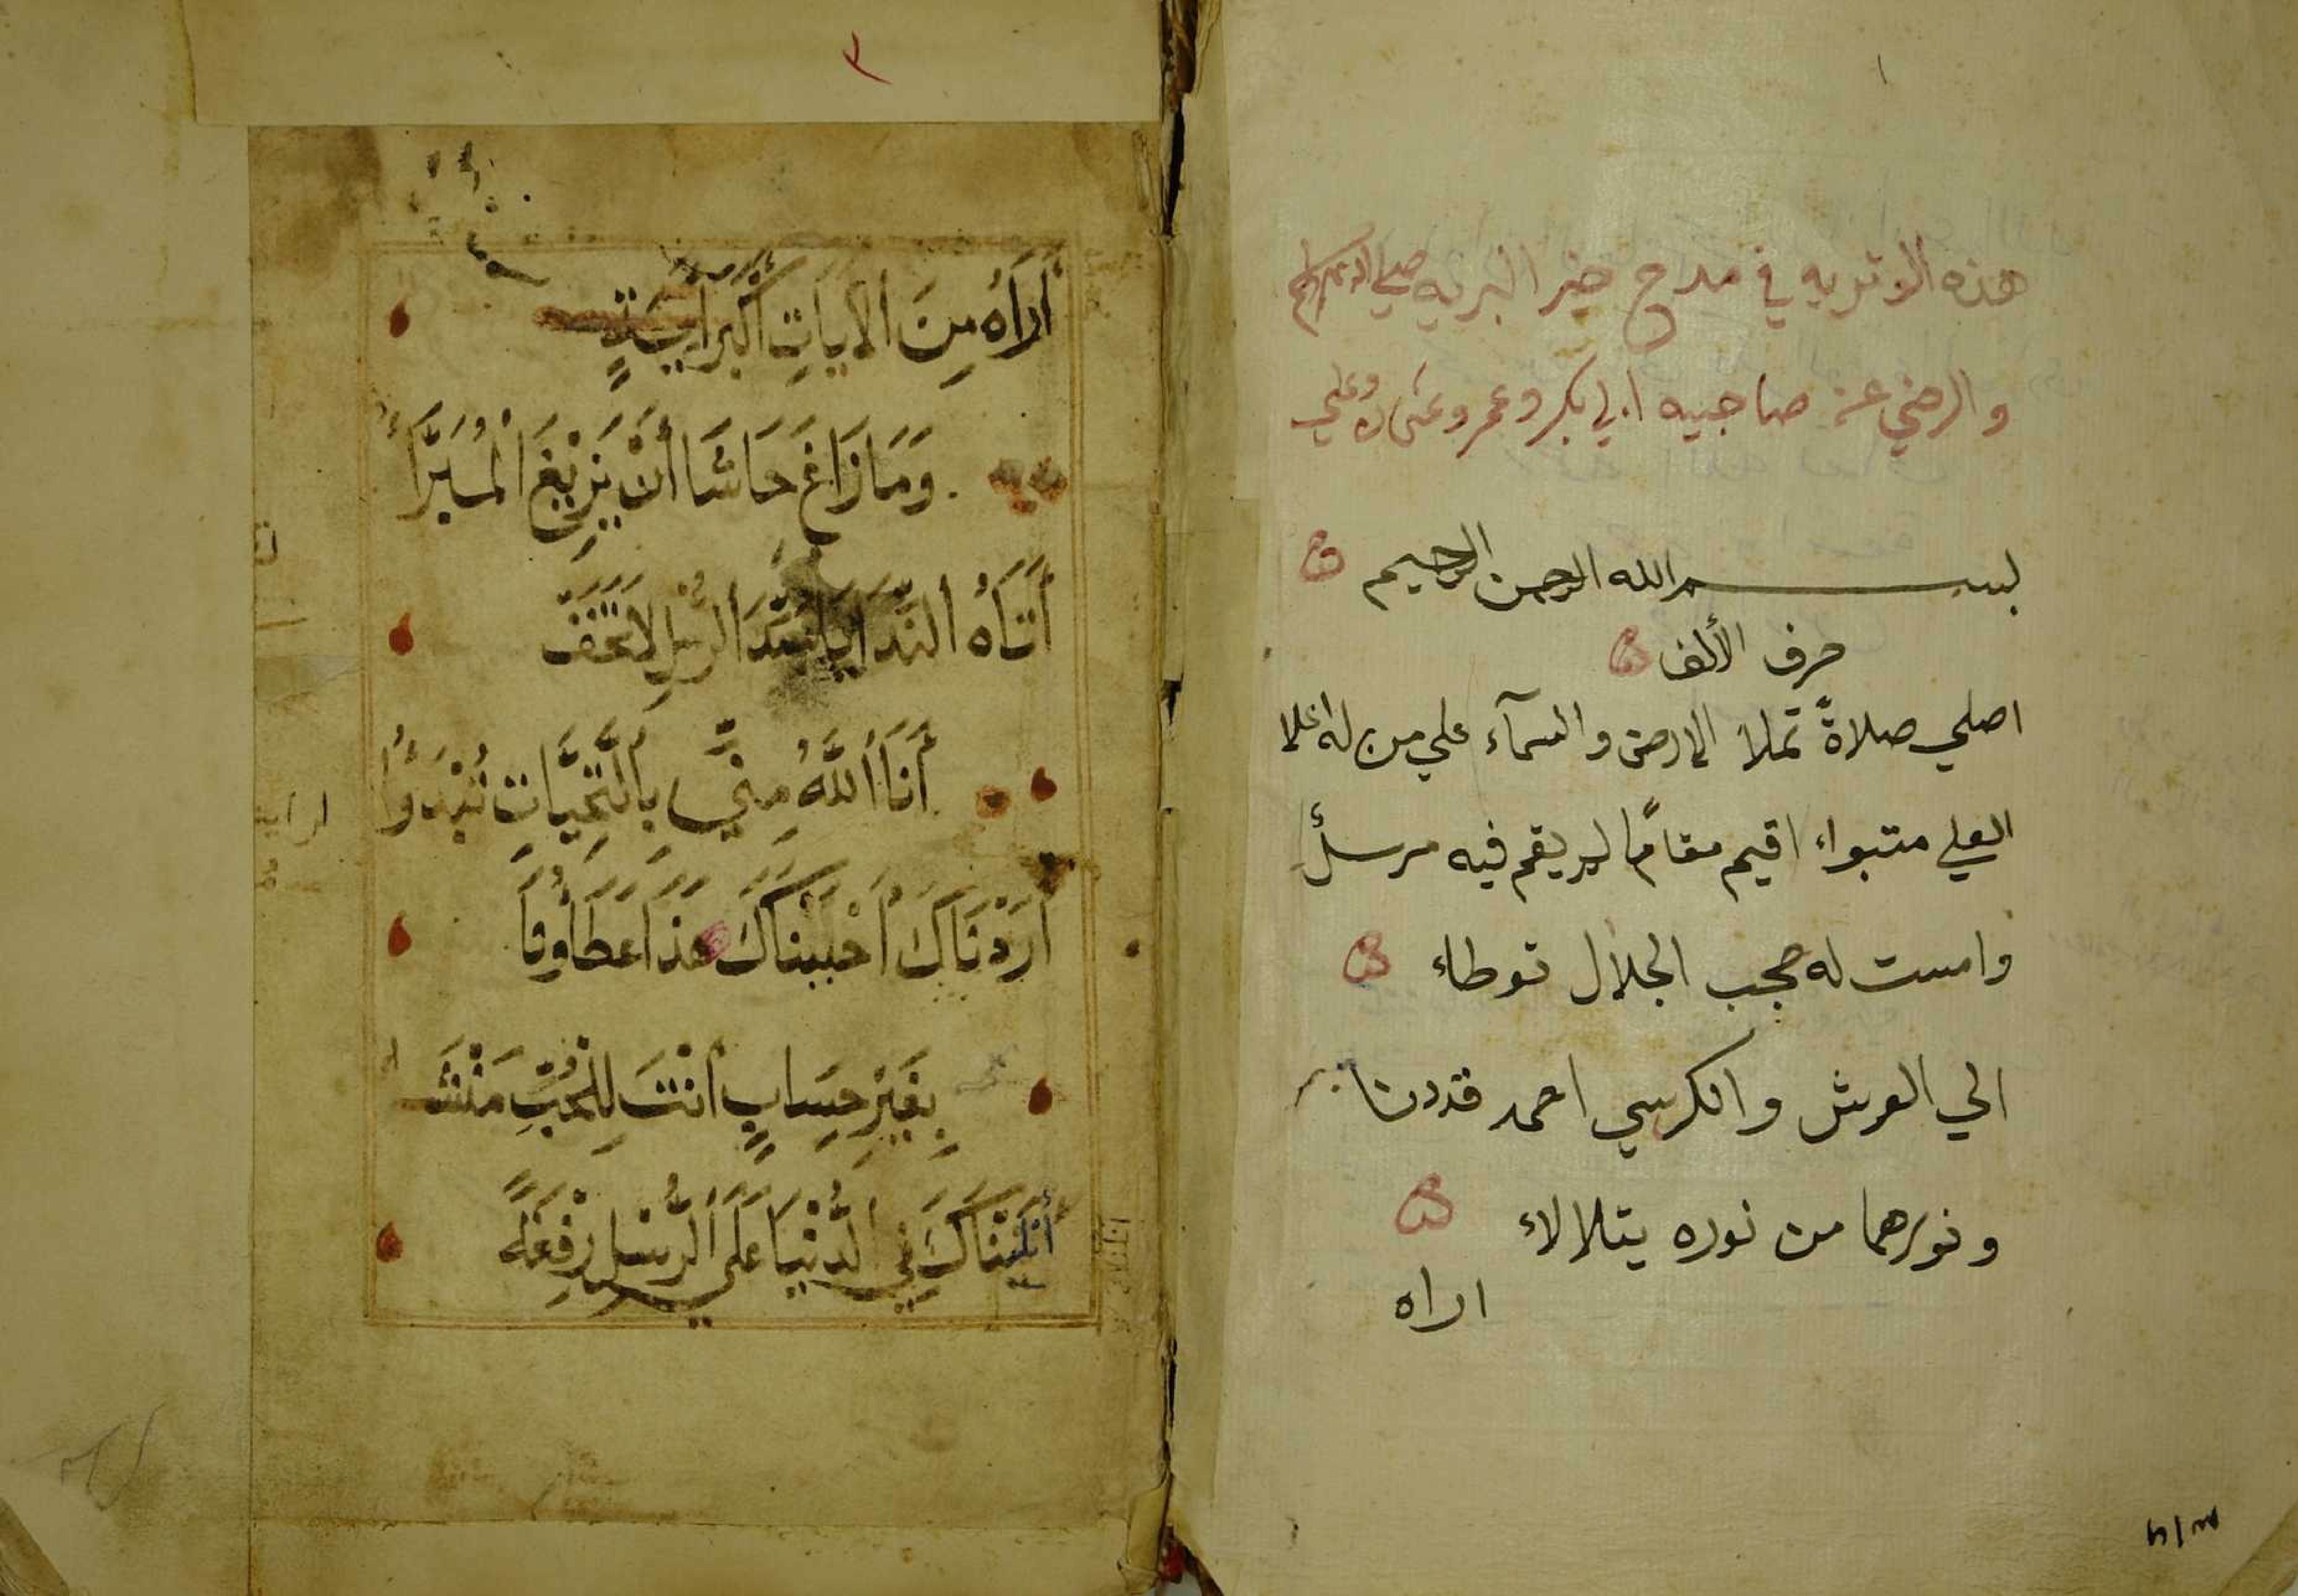 هذه الوتريه في مدح خير البريه صلى الله عليه وسلم
والرضي عن صاحبيه ابي بكر وعمر وعثمان وعلي
بسم الله الرحمن الرحيم
حرف الألف
اصلي صلاةً تملا الارض والسمآء علي من له اعلا
العلي متبواء اقيم مقامًا لم يقم فيه مرسلٌ
وامست له حجب الجلال توطاء
الي العرش والكرسي احمد قددنا
ونورهما من نوره يتلالاء
اراه
٢
أَرَاهُ مِنَ الْآيَاتِ أَكْبَرَ آيَةٍ
وَمَا زَاغَ حَاشَا أَنْ يَزِيْغَ الْمُبَرَّأُ
أَتَاهُ النِّدَا يَا سَيِّدَ الرُّسْلِ لَا تَخَفْ
أَنَا اللَّهُ مِنِّي بِالتَّحِيَّاتِ تُبْدَؤُا
أَرَدْنَاكَ أَحْبَبْنَاكَ هَذَا عَطَاؤُنَا
بِغَيْرِ حِسَابٍ أَنْتَ لِلْحُبِّ مَنْشَأ
أَنَلْنَاكَ فِي الدُّنْيَا عَلَى الرُّسْلِ رِفْعَةً